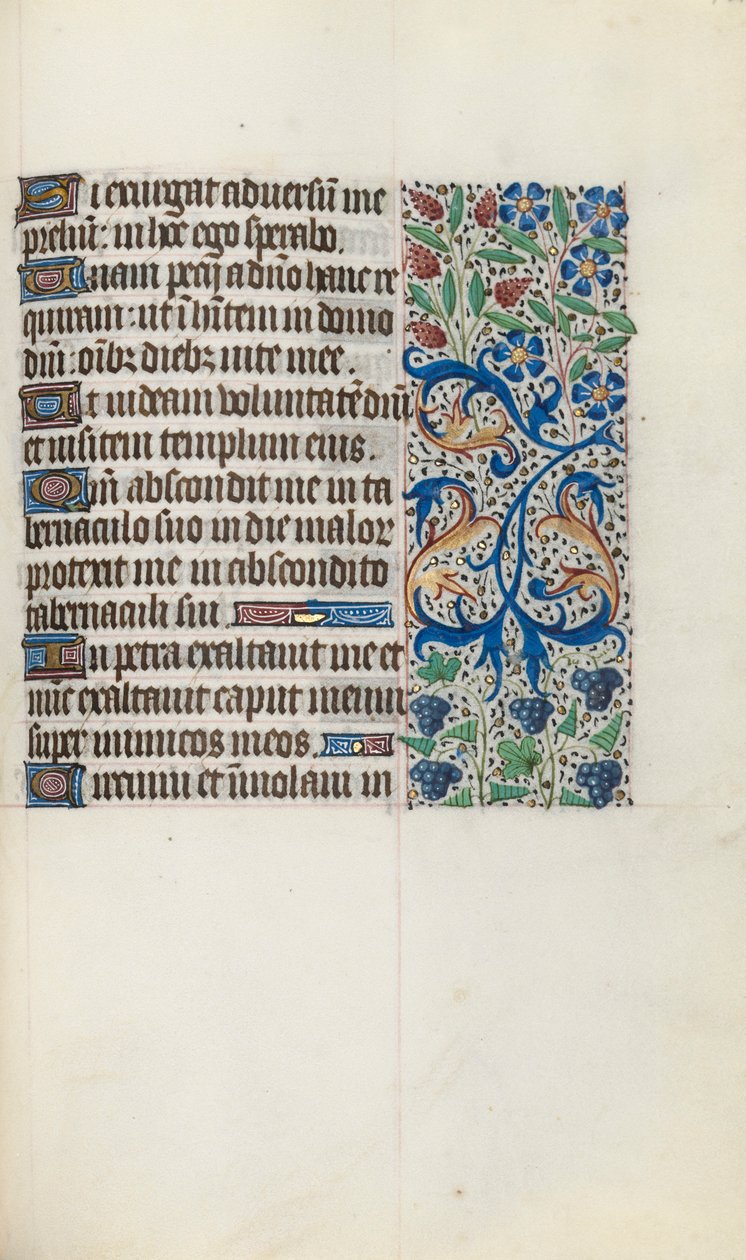 Si exurgat adversū me
preliū: in hoc ego sperabo.
Unam pecij a dn̄o hanc re
quiram: ut ī hītem in domo
dn̄i: oīb᷒ dieb᷒ vite mee.
Ut videam voluntatē dn̄i
et visitem templum eius.
Qm̄ abscondit me in ta
bernaculo suo in die malor
protexit me in abscondito
tabernaculi sui
In petra exaltavit me et
nūc exaltavit caput meum
super inimicos meos.
Circuivi et īmolavi in